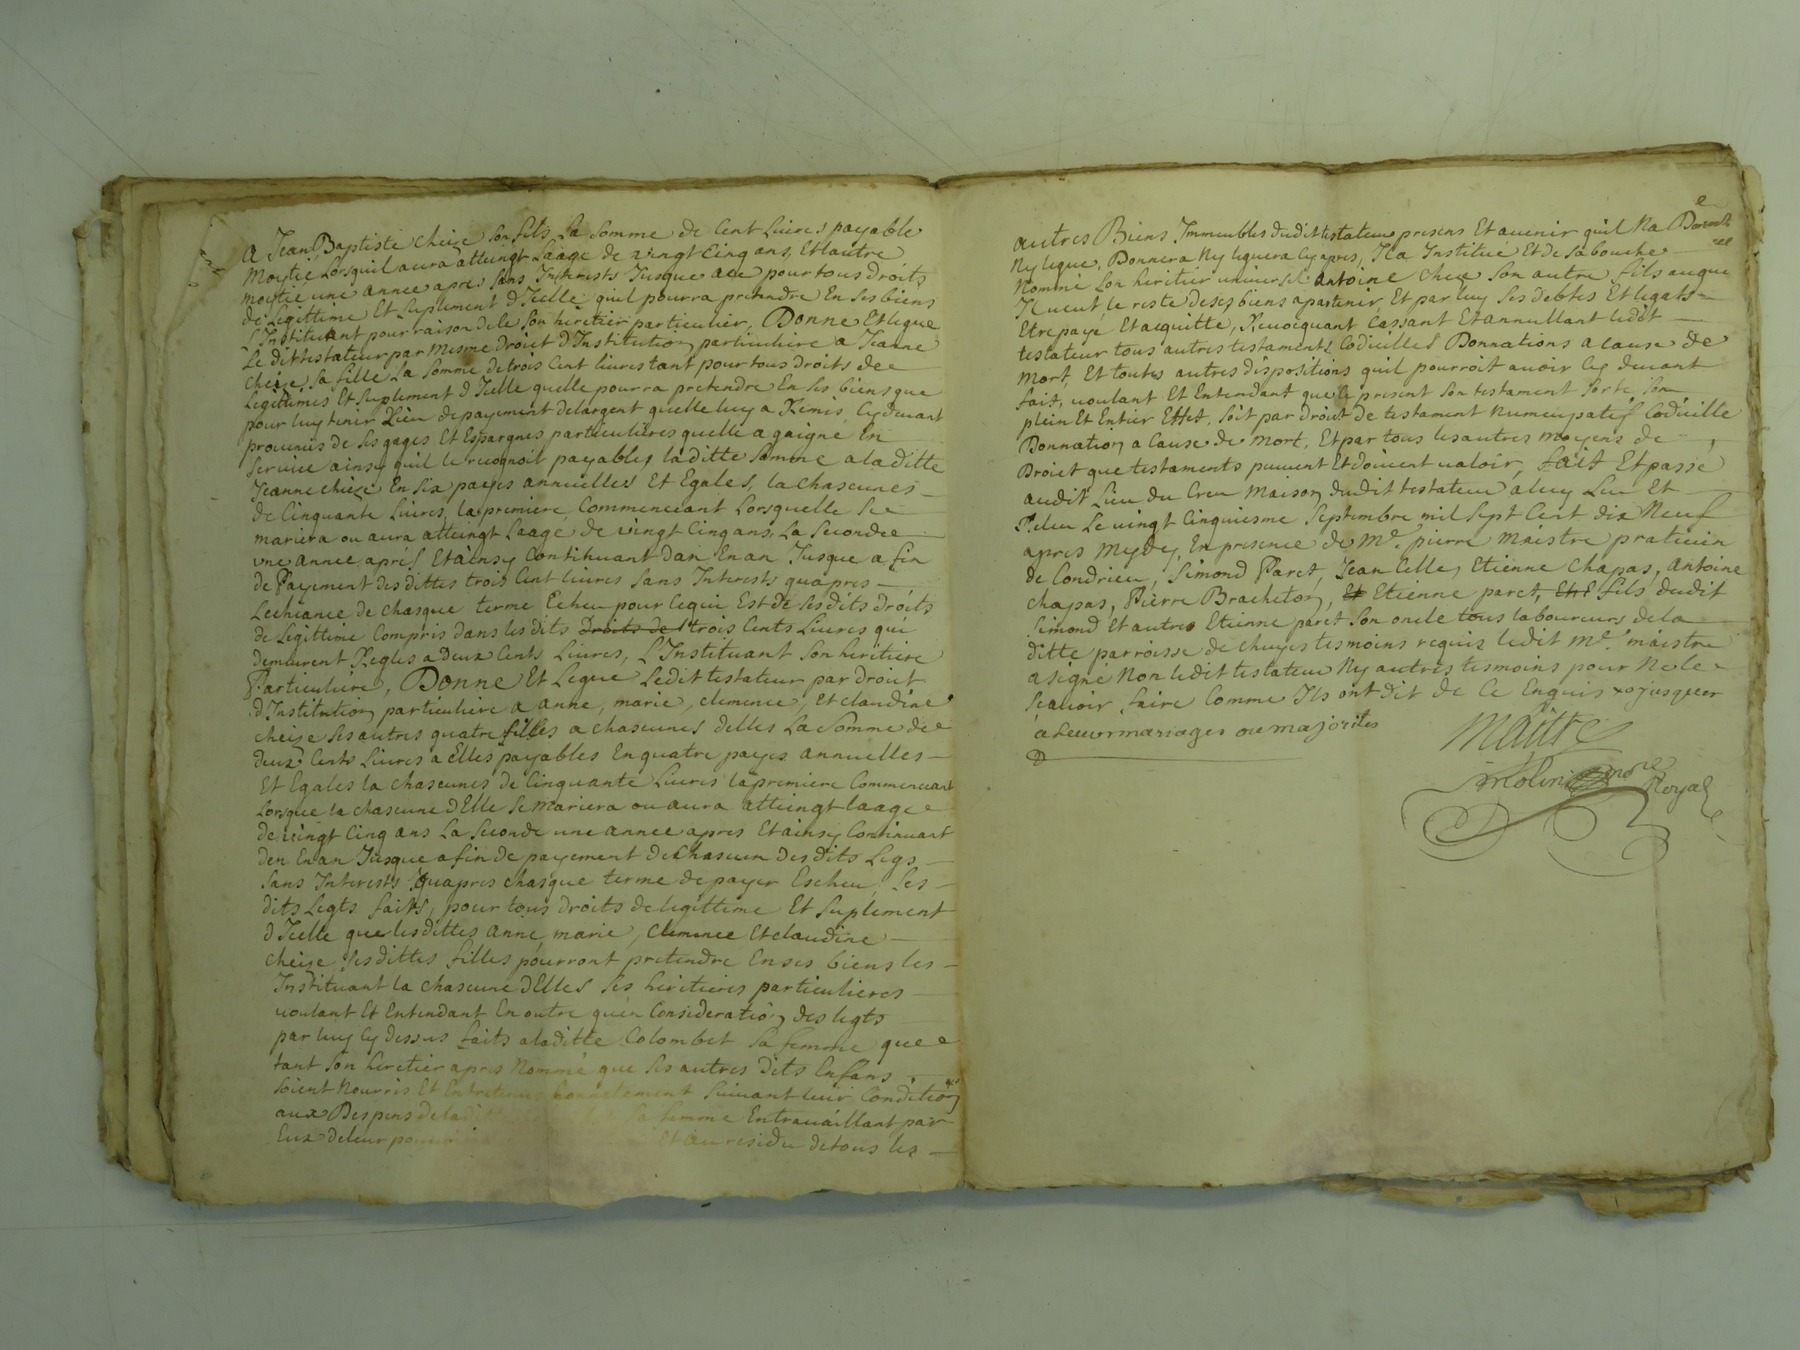 A Jean Baptiste cheize son fils La Somme de Cent Livres payable
Moytié Lorsquil aura atteingt Laage de vingt Cinq ans, Et Lautre
moytié une annee apres sans Interests Jusque a ce pour tous droits
de Legittime Et Suplement d'Icelle quil pourra pretendre En Ses biens
L'Instituant pour raison de ce Son heretier particulier, Donne Et legue
Le dit testateur par Mesme droict d'Institution particuliere a Jeanne
cheize sa fille La Somme de trois Cent livres tant pour tous droits de
Legittimes Et Suplement d'Icelle quelle pourra pretendre En Ses biens que
pour luy tenir Lieu de payement de largent quelle luy a Remis Cy devant
provenus de Ses gages Et Espargnes particulieres quelle a gaigné En
Service ainsy quil le recognoit payables laditte Somme a laditte
Jeanne cheize En Six payes annuelles Et Egales, la chascunes
de Cinquante Livres, la premiere Commencant Lorsquelle Se
mariera ou aura atteingt Laage de vingt Cinq ans, La Seconde
une annee aprés Et ainsy Continuant dan En an Jusque a fin
de Payement desdittes trois Cent livres Sans Interests quapres
Lecheance de chasque terme Echeu pour Cequi Est de Ses dits droits
de Legittime Compris dans les dits Droits de l trois Cents Livres qui
demeurent Regles a Deux Cents Livres, L'Instituant Son heritiere
Particuliere, Donne Et Legue Ledit testateur par Droit
d'Institution particuliere a anne, marie, clemence, Et claudine
cheize Ses autres quatre filles a chascunes delles La Somme de
deux Cents Livres a Elles payables En quatre payes annuelles
Et Egales la chascunes de Cinquante Livres la premiere Commencant
Lorsque la chascune d'Elle Se Mariera ou aura atteingt laage
de vingt Cinq ans La Seconde une annee apres Et ainsy Continuant
den En an Jusque a fin de payement de Chascun des dits Legs
Sans Interests quapres chasque terme de payer Escheu, Les
dits Legts faits, pour tous droits de legittime Et Suplement
d'Icelle que lesdittes anne, marie, Clemence Et claudine
cheize Sesdittes filles pourront pretendre En ses biens les
Instituant la chascune d'Elles Ses heritieres particulieres
voulant Et Entendant En outre quen Consideration des legts
par luy Cy Dessus faits a laditte Colombet Sa femme que
tant Son heretier apres Nommé que Ses autres dits Enfans
soient Nourris Et Entretenus honnetement Suivant leur Condition
aux Despens de la femme En travaillant par
Eux de leur Et au residu de tous les
autres Biens Immeubles dudit testateur presens Et avenir quil Na Donné
Ny legué, Donnera Ny leguera Cy apres, Il a Institué Et de Sa bouche
Nommé Son heritier universel Antoine cheize Son autre fils auquel
Il veut le reste de ses biens apartenir, Et par luy Ses Debtes Et legats
Etre payé Et acquitte, Revocquant Cassant Et annullant ledit
testateur tous autres testaments, Codicilles Donnations a cause de
Mort, Et toutes autres dispositions quil pourroit avoir Cy devant
fait, voulant Et Entendant que le present Son testament Sorte Son
plein Et Entier Effet, Soit par Droict de testament Numcupatif Codicille
Donnation a Cause de Mort, Et par tous les autres moyens de
Droict que testaments peuvent Et doivent valoir, fait Et passé
audit Lieu du Creu Maison dudit testateur a luy Leu Et
Releu Le vingt Cinquiesme Septembre mil Sept Cent dix Neuf
apres Mydy, En presence de Me. pierre maistre praticien
de Condrieu, Simond Paret, Jean Celle, Etienne Chapas, Antoine
chapas, Pierre Bracheton, Et Etienne paret, Et E fils dudit
Simond Et autre Etienne paret Son oncle tous laboureurs de la
ditte parroisse de chuyes tesmoins requis ledit Me. maistre
a signé Non ledit testateur Ny autres tesmoins pour Ne le
Scavoir faire Comme Ils ont dit de Ce Enquis xo jusques
a leurs mariages ou majorites
Maitre
Molin Nore
Royal